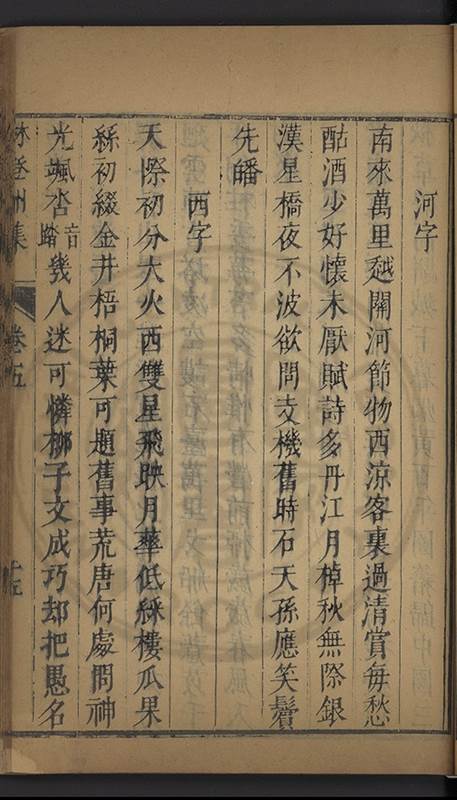 河字
南來萬里越關河節物西涼客裏過清賞每愁
酤酒少好懷未厭賦詩多丹江月棹秋無際銀
漢星橋夜不波欲問支機舊時石天孫應笑鬢
先皤
西字
天際初分大火西雙星飛映月華低綵樓瓜果
絲初綴金井梧桐葉可題舊事荒唐何處問神
光颯沓音踏幾人迷可憐柳子文成巧却把愚名
卷五